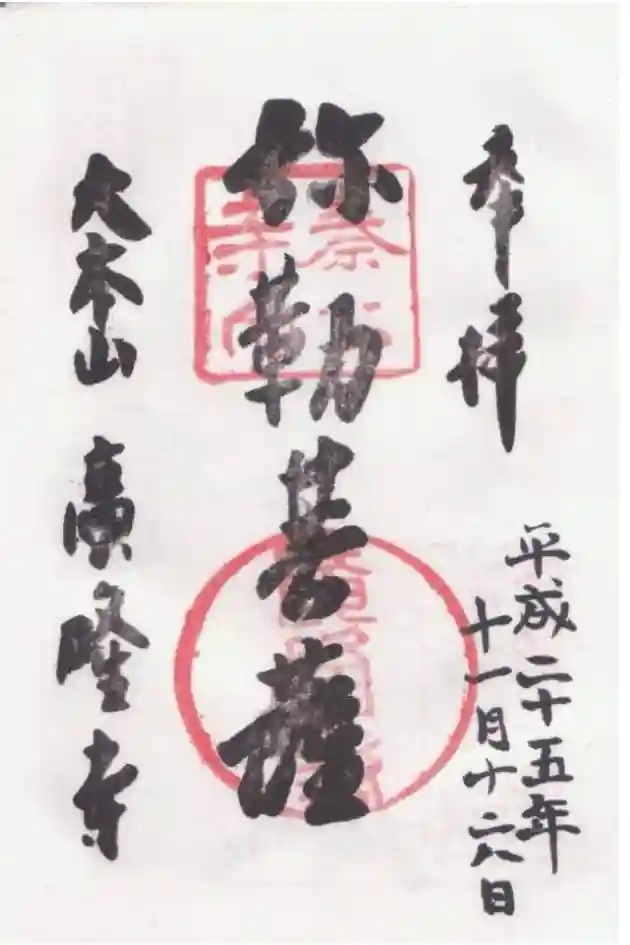 奉拝
平成二十五年
十一月十六日
弥勒菩薩
大本山 廣隆寺